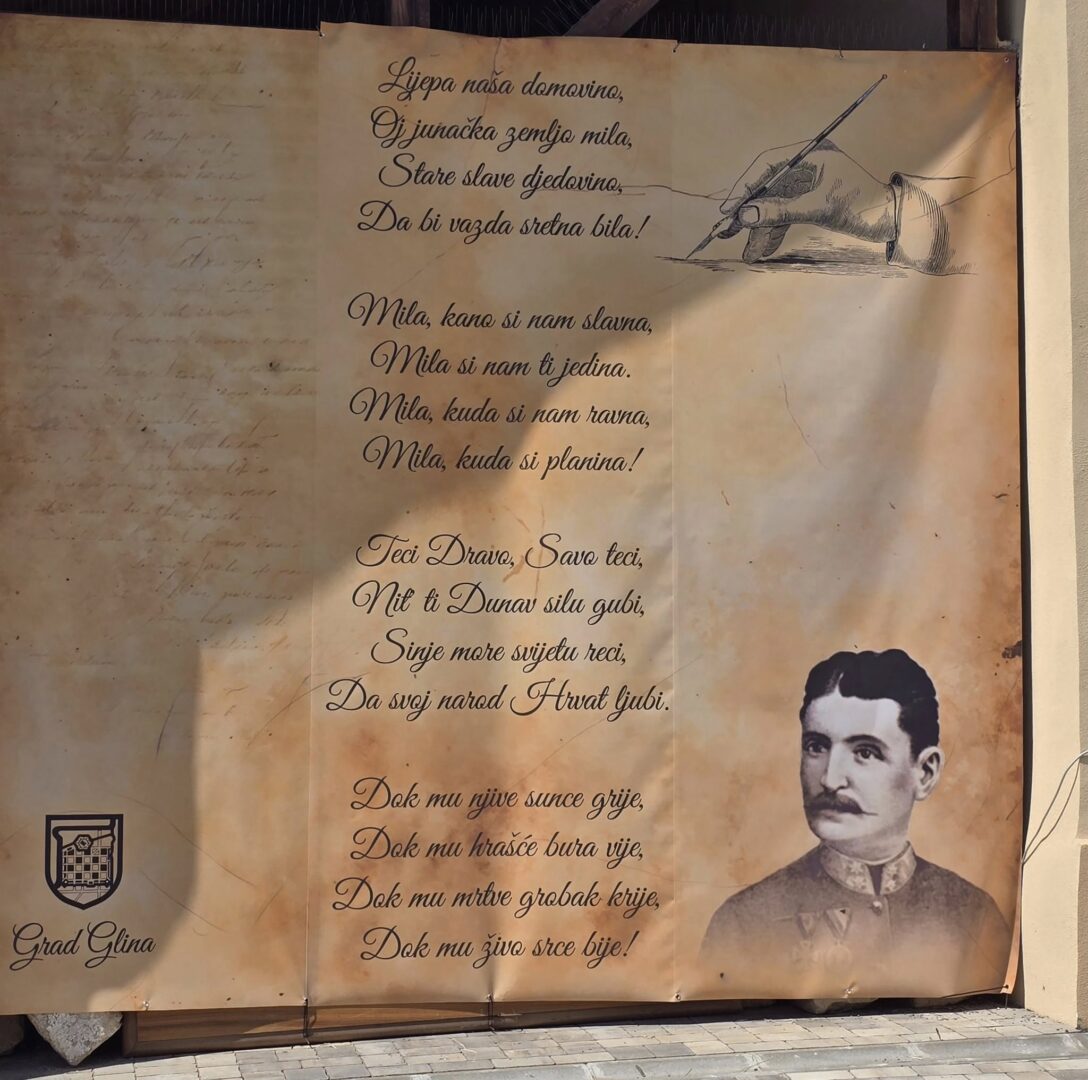 Lijepa naša domovino,
Oj junačka zemljo mila,
Stare slave djedovino,
Da bi vazda sretna bila!
Mila, kano si nam slavna,
Mila si nam ti jedina.
Mila, kuda si nam ravna,
Mila, kuda si planina!
Teci Dravo, Savo teci,
Nit' ti Dunav silu gubi,
Sinje more svijetu reci,
Da svoj narod Hrvat ljubi.
Dok mu njive sunce grije,
Dok mu hrašće bura vije,
Dok mu mrtve grobak krije,
Dok mu živo srce bije!
Grad Glina